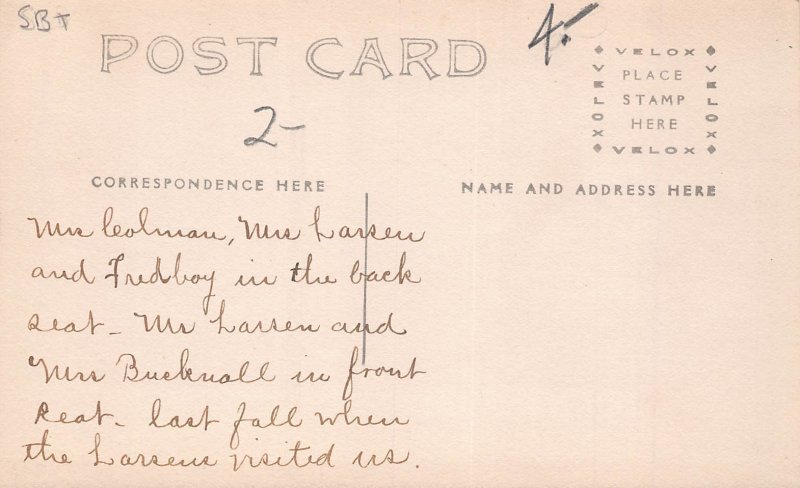 SBT
4.-
POST CARD
VELOX
VELOX
PLACE
STAMP
HERE
VELOX
VELOX
2-
CORRESPONDENCE HERE
NAME AND ADDRESS HERE
Mrs Colman, Mrs Larsen
and Fredboy in the back
seat - Mr Larsen and
Mrs Bucknall in front
seat - last fall when
the Larsens visited us.